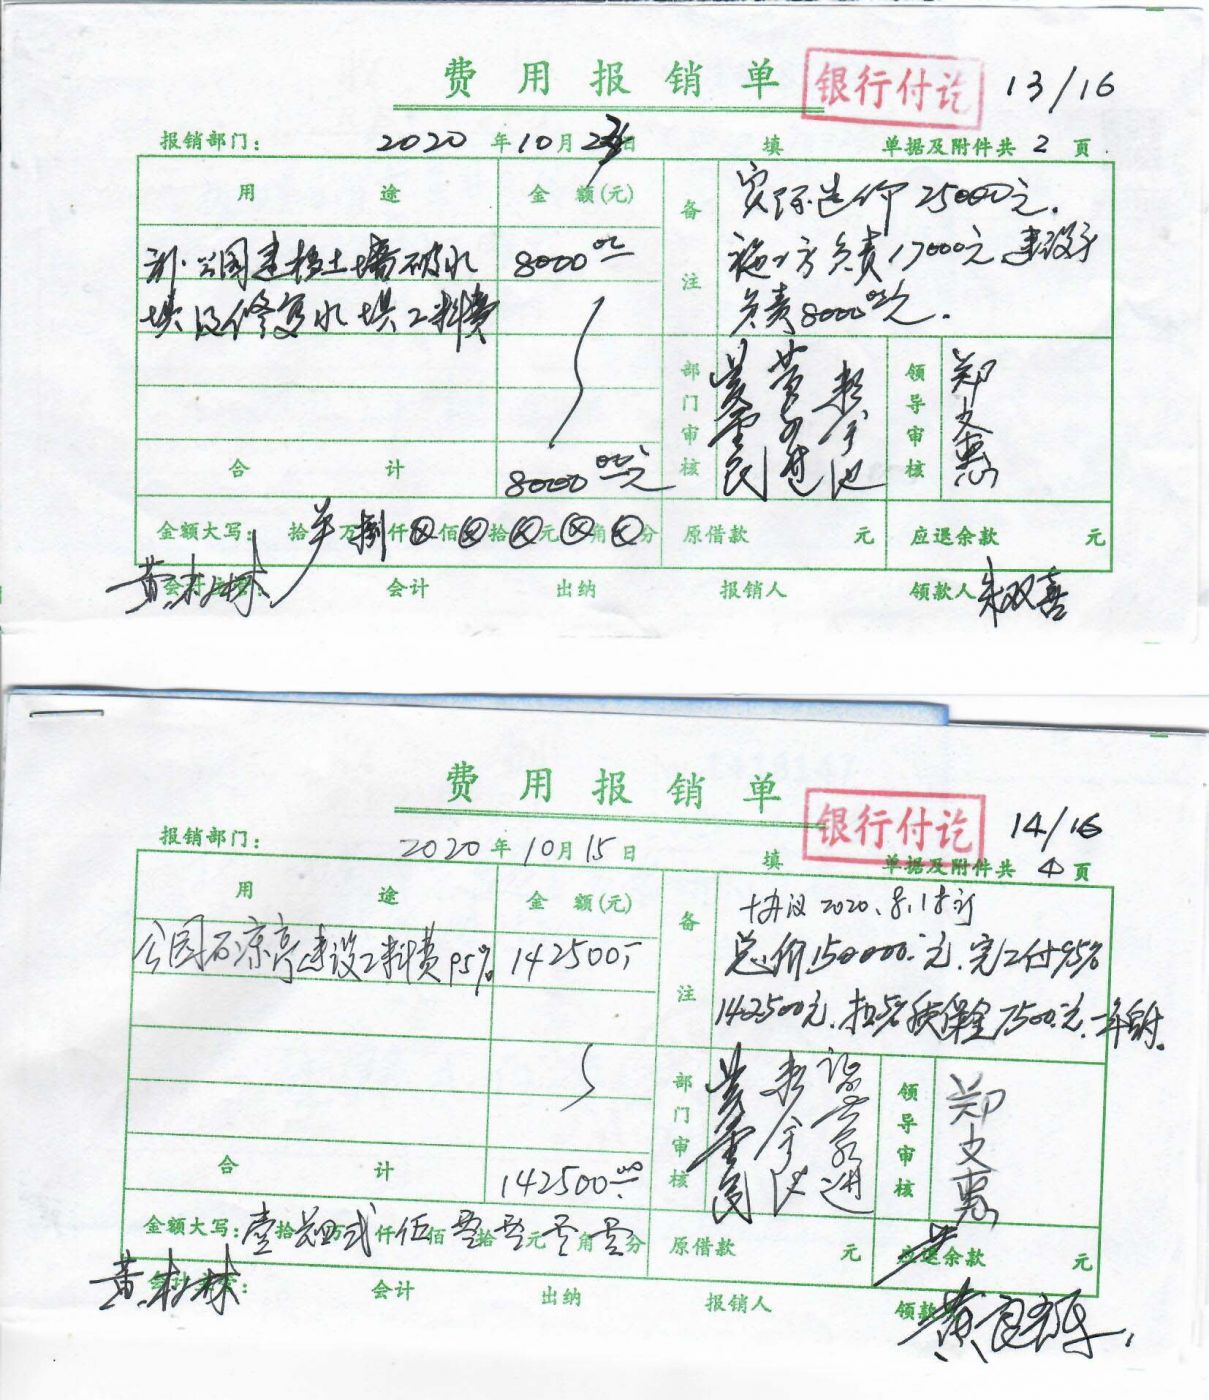 费用报销单
银行付讫
13/16
报销部门： 2020年10月 日 填 单据及附件共2页
用途 金额(元) 备注
实际造价25000元.
施工方负责17000元 建设方
负责8000元.
公园建挡土墙破水 8000
填及修复水填工料费
部门审核 领导审核 郑文惠
合计 8000元
金额大写： 拾 万捌仟 佰 拾 元 角 分 原借款 元 应退余款 元
黄 林 会计 出纳 报销人 领款人 朱双喜
费用报销单
银行付讫
14/16
报销部门： 2020年10月15日 填 单据及附件共4页
用途 金额(元) 备注
协议2020.8.1签订
公园石凉亭建设工料费95% 142500
总价150000元.完工付95%
142500元.扣5%质保金7500元.一年后付.
部门审核 领导审核 郑文惠
合计 142500
金额大写：壹拾肆万贰仟伍佰零拾零元零角零分 原借款 元 应退余款 元
黄 林 会计 出纳 报销人 领款